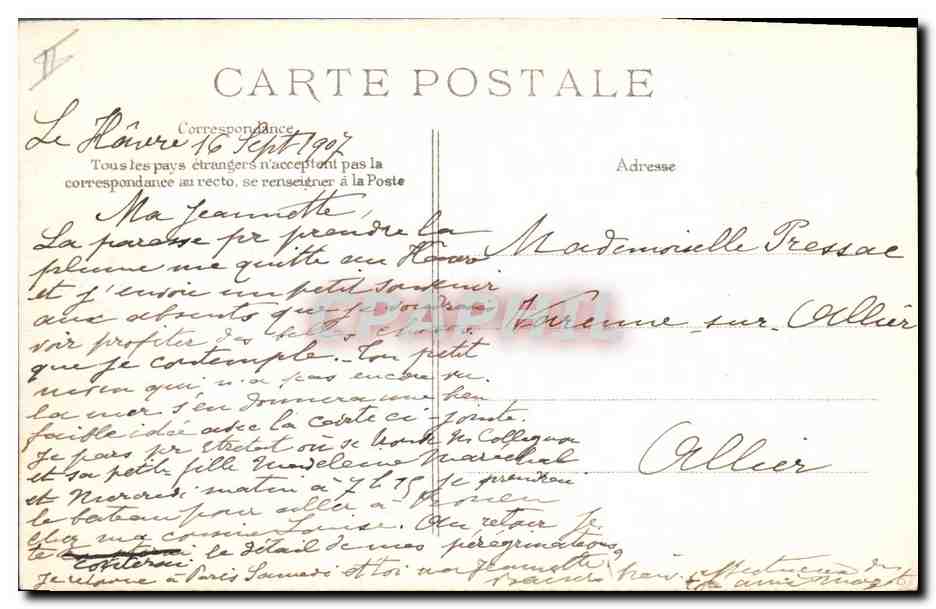 II
CARTE POSTALE
Correspondance
Le Hâvre 16 Sept 1907
Tous les pays étrangers n'acceptent pas la
correspondance au recto, se renseigner à la Poste
Adresse
Ma Jeannette,
La paresse pr prendre la
plume me quitte au Hâvre
et j'envoie un petit souvenir
aux absents que je voudrais
voir profiter des belles choses
que je contemple. - Ton petit
qui n'a pas encore vu
la mer s'en donnera une bien
faible idée avec la carte ci-jointe.
Je pars pr Etretat où se trouve
et sa petite fille Madeleine Maréchal
et Mercredi matin à 7h15 je prendrai
le bateau pour aller à Rouen
chez ma cousine Louise. Au retour je
te conterai le détail de mes pérégrinations
Je retourne à Paris Samedi et toi ma Jeannette
Mademoiselle Pressac
Varenne-sur-Allier
Allier
CPAPHIL